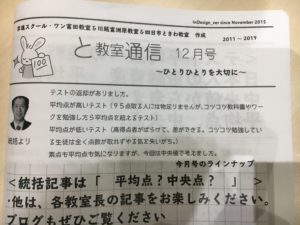 InDesign_ver since November 2015
京進スクール・ワン富田教室＆川越富洲原教室＆四日市ときわ教室 作成
2011～2019
と教室通信 12月号
～ひとりひとりを大切に～
100
テストの返却がありました。
平均点が高いテスト（９５点取る人には物足りませんが、コツコツ教科書やワークを勉強しても平均点を超えるテスト）
平均点が低いテスト（高得点者がばらけて、差ができる。コツコツ勉強している生徒は全く点数が取れずやる気を失いがち）
素点も平均点も気になりますが、今回は中央値で考えました。
統括より
今月号のラインナップ
＜統括記事は「 平均点？中央点？ 」＞
・他は、各教室長の記事をお楽しみください。
ブログもぜひご覧ください